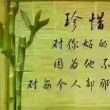 珍惜
对你好的
因为他不
对每个人都那